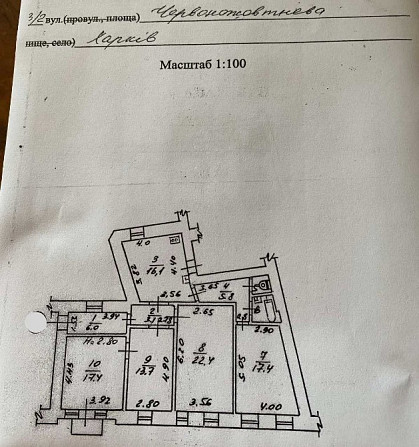 3/2 вул.(провул., площа) Червоножовтнева
нище, село) Харків
Масштаб 1:100
4.0
3.82
3
16,1
4.40
2.56
3.65
4
5.8
5
6
2.8
2.90
1
6.0
1.52
3.94
2
3.1
2.65
H=2.80
10
17.4
4.43
3.92
9
13.7
4.90
2.80
6.20
8
22,4
3.56
5.05
7
17.4
4.00